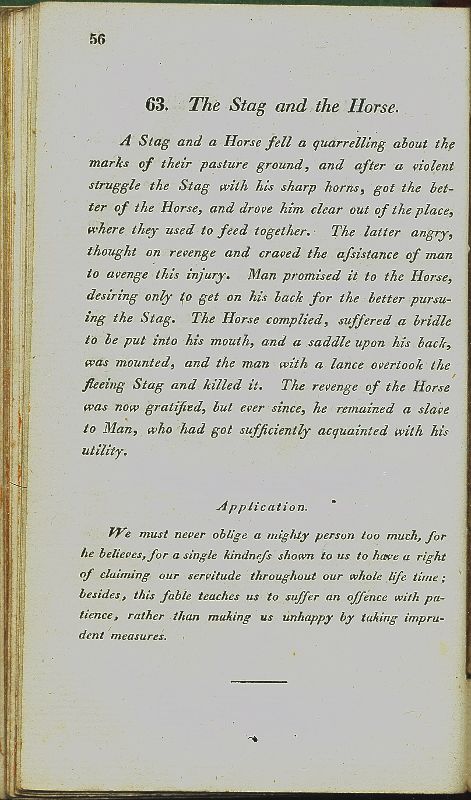 56
63. The Stag and the Horse.
A Stag and a Horse fell a quarrelling about the
marks of their pasture ground, and after a violent
struggle the Stag with his sharp horns, got the bet-
ter of the Horse, and drove him clear out of the place,
where they used to feed together. The latter angry,
thought on revenge and craved the aſsistance of man
to avenge this injury. Man promised it to the Horse,
desiring only to get on his back for the better pursu-
ing the Stag. The Horse complied, suffered a bridle
to be put into his mouth, and a saddle upon his back,
was mounted, and the man with a lance overtook the
fleeing Stag and killed it. The revenge of the Horse
was now gratified, but ever since, he remained a slave
to Man, who had got sufficiently acquainted with his
utility.
Application.
We must never oblige a mighty person too much, for
he believes, for a single kindneſs shown to us to have a right
of claiming our servitude throughout our whole life time;
besides, this fable teaches us to suffer an offence with pa-
tience, rather than making us unhappy by taking impru-
dent measures.